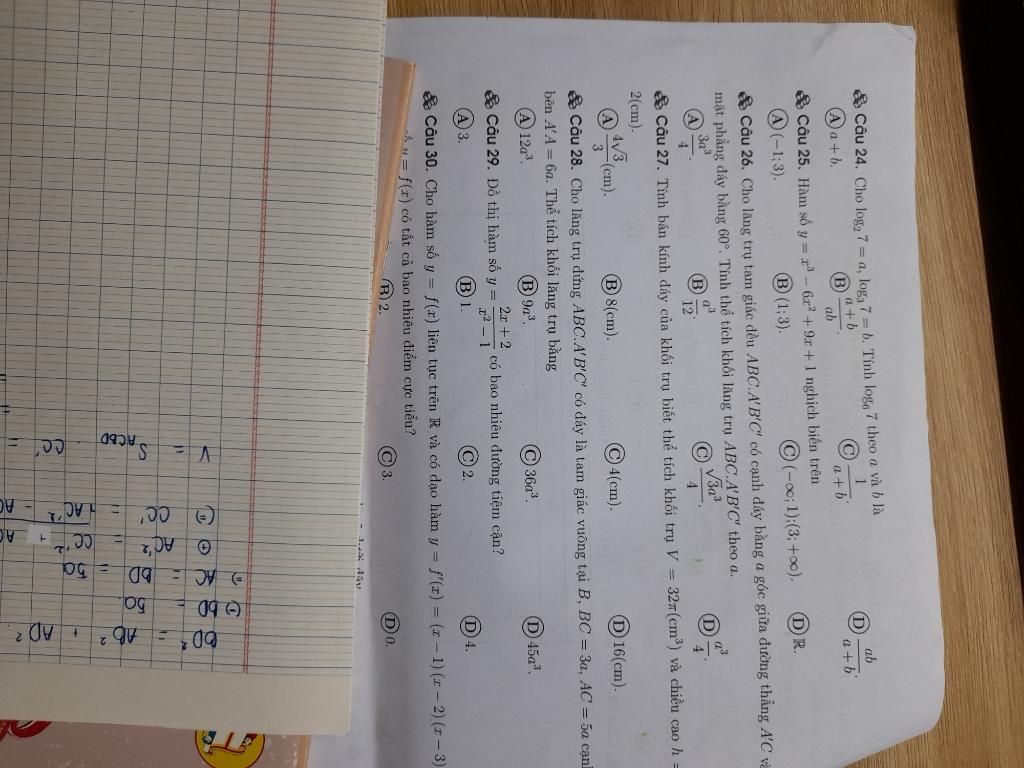 Câu 24. Cho log₂ 7 = a, log₃ 7 = b. Tính log₆ 7 theo a và b là
A a + b. B \frac{a + b}{ab}. C \frac{1}{a + b}. D \frac{ab}{a + b}.
Câu 25. Hàm số y = x³ − 6x² + 9x + 1 nghịch biến trên
A (−1; 3). B (1; 3). C (−∞; 1); (3; +∞). D ℝ.
Câu 26. Cho lăng trụ tam giác đều ABC.A′B′C′ có cạnh đáy bằng a góc giữa đường thẳng A′C và
mặt phẳng đáy bằng 60°. Tính thể tích khối lăng trụ ABC.A′B′C′ theo a.
A \frac{3a³}{4}. B \frac{a³}{12}. C \frac{√3a³}{4}. D \frac{a³}{4}.
Câu 27. Tính bán kính đáy của khối trụ biết thể tích khối trụ V = 32π(cm³) và chiều cao h =
2(cm).
A \frac{4√3}{3}(cm). B 8(cm). C 4(cm). D 16(cm).
Câu 28. Cho lăng trụ đứng ABC.A′B′C′ có đáy là tam giác vuông tại B, BC = 3a, AC = 5a cạnh
bên A′A = 6a. Thể tích khối lăng trụ bằng
A 12a³. B 9a³. C 36a³. D 45a³.
Câu 29. Đồ thị hàm số y = \frac{2x + 2}{x² − 1} có bao nhiêu đường tiệm cận?
A 3. B 1. C 2. D 4.
Câu 30. Cho hàm số y = f(x) liên tục trên ℝ và có đạo hàm y = f′(x) = (x − 1)(x − 2)(x − 3)
y = f(x) có tất cả bao nhiêu điểm cực tiểu?
B 2. C 3. D 0.
BD² = AB² + AD²
(=) BD = 5a
=) AC = BD = 5a
AC'² = CC'² +
(=) CC' =
V = S_{ABCD} . CC' =